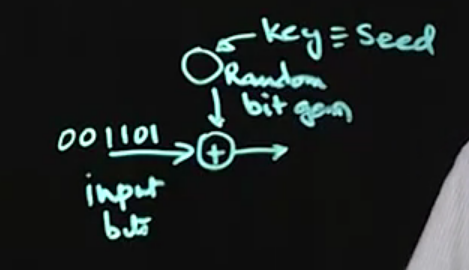 key ≡ Seed
Random
bit gen
001101
+
input
bits